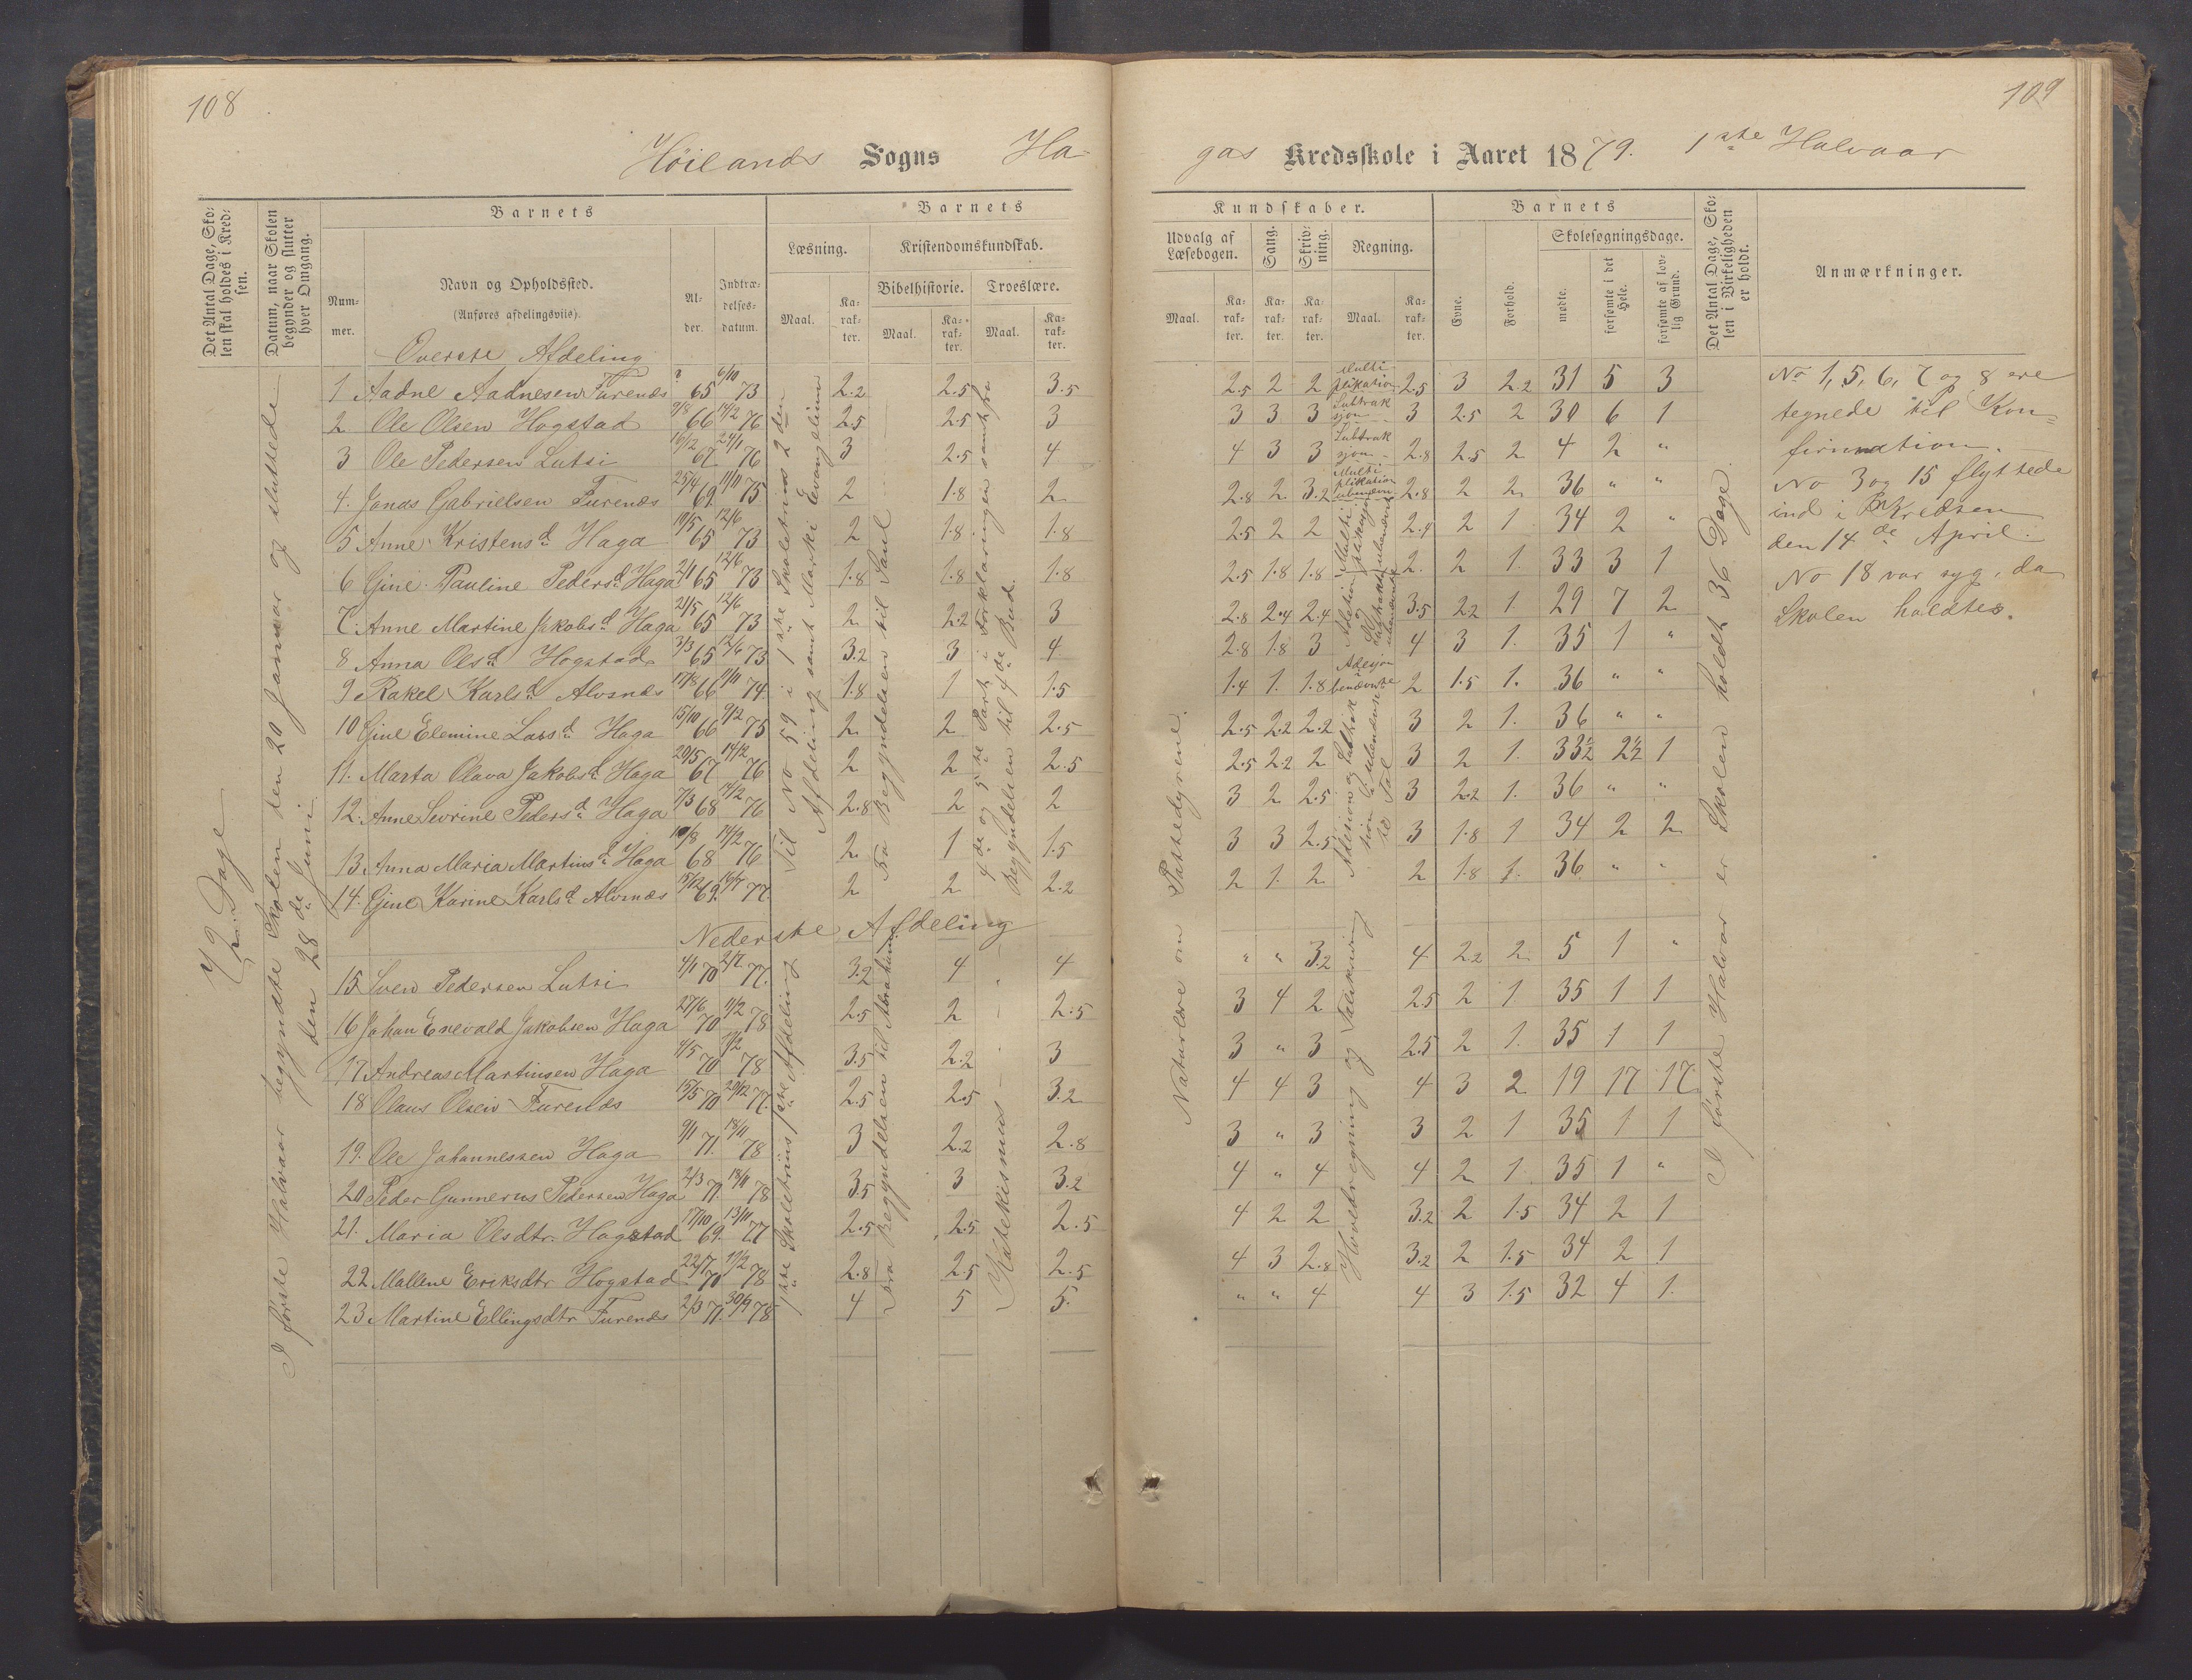 108
109
Höilands Sogns Ha-
gas Kredsskole i Aaret 1879. 1ste Halvaar
Det Antal Dage, Skolen skal holdes i Kredsen.
Datum, naar Skolen begynder og slutter hver Omgang.
Barnets
Nummer.
Navn og Opholdssted.
(Anføres afdelingsviis).
Alder.
Indtrædelsesdatum.
Barnets
Læsning.
Kristendomskundskab.
Bibelhistorie. Troeslære.
Maal. Karakter. Maal. Karakter. Maal. Karakter.
Kundskaber.
Udvalg af Læsebogen. Sang. Skrivning. Regning.
Maal. Karakter. Karakter. Karakter. Maal. Karakter.
Barnets
Evne. Forhold.
Skolesøgningsdage.
mødte. forsømte i det Hele. forsømte af lovlig Grund.
Det Antal Dage, Skolen i Virkeligheden er holdt.
Anmærkninger.
72 Dage
I første Halvaar begyndte Skolen den 20 Januar og sluttede
den 28de Juni
Överste Afdeling
1 Aadne Aadnesen Furenes ? 65 6/10 73 2.2 2.5 3.5 2.5 2 2 2.5 3 2.2 31 5 3
2 Ole Olsen Hogstad 9/8 66 14/2 76 2.5 2.5 3 3 3 3 3 2.5 2 30 6 1
3 Ole Pedersen Lutsi 16/2 67 24/1 76 3 2.5 4 4 3 3 2.8 2.5 2 4 2 "
4. Jonas Gabrielsen Furenes 25/4 69 11/11 75 2 1.8 2 2.8 2 3.2 2.8 2 2 36 " "
5 Anne Kristensd. Haga 10/5 65 12/6 73 2 1.8 1.8 2.5 2 2 2.4 2 1 34 2 "
6 Gine Pauline Pedersd. Haga 2/1 65 12/6 73 1.8 1.8 1.8 2.5 1.8 1.8 2. 2 1. 33 3 1
7. Anne Martine Jakobsd. Haga 21/5 65 12/6 73 2 2.2 3 2.8 2.4 2.4 3.5 2.2 1. 29 7 2
8 Anna Olsd. Hogstad 3/3 65 12/6 73 3.2 3 4 2.8 1.8 3 4 3 1. 35 1 "
9 Rakel Karlsd. Alvsnes 17/8 66 2/11 74 1.8 1 1.5 1.4 1. 1.8 2 1.5 1. 36 " "
10 Gine Elemine Larsd. Haga 15/10 66 9/2 75 2 2 2.5 2.5 2.2 2.2 3 2 1. 36 " "
11. Marta Olava Jakobsd. Haga 20/5 67 14/2 76 2 2 2.5 2.5 2.2 2 3 2 1. 33½ 2½ 1
12. Anne Sevrine Pedersd. Haga 7/3 68 14/2 76 2.8 2 2 3 2 2.5 3 2.2 1. 36 " "
13. Anna Maria Martinsd. Haga 10/8 68 14/2 76 2 1 1.5 3 3 2.5 3 1.8 1 34 2 2
14. Gine Karine Karlsd. Alvsnes 15/12 69. 16/7 77. 2 2 2.2 2 1. 2 2 1.8 1. 36 " "
Til No 59 i 1ste Skoletrins 2den
Afdeling samt Marki Evangelium
Fra Begyndelsen til Saul
4de og 5te Part i Forklaringen samt fra
Begyndelsen til 4de Bud.
Multiplikation
Subtraksjon
Subtraksjon
Multiplikation
Nederste Afdeling
15 Sven Pedersen Lutsi 4/1 70 2/7 77. 3.2 4 4 " " 3.2 4 2.2 2 5 1 "
16 Johan Enevald Jakobsen Haga 27/6 70 11/2 78 2.5 2 2.5 3 4 2 2.5 2 1 35 1 1
17 Andreas Martinsen Haga 4/5 70 7/2 78 3.5 2.2 3 3 " 3 2.5 2 1. 35 1 1
18 Olaus Olsen Furenes 15/5 70 20/12 77. 2.5 2.5 3.2 4 4 3 4 3 2 19 17 17
19. Ole Johannessen Haga 9/1 71. 18/11 78 3 2.2 2.8 3 " 3 3 2 1 35 1 1
20 Peder Gunnerus Pedersen Haga 2/3 71. 18/11 78 3.5 3 3.2 4 " 4 4 2 1 35 1 "
21. Maria Olsdtr. Hogstad 17/10 69. 13/11 77 2.5 2.5 2.5 4 2 2 3.2 2 1.5 34 2 1
22 Mallene Eriksdtr Hogstad 22/7 70 11/2 78 2.8 2.5 2.5 4 3 2.8 3.2 2 1.5 34 2 1
23. Martine Ellingsdtr Furenes 2/3 71. 30/9 78 4 5 5. " " 4 4 3 1.5 32 4 1.
1ste Skoletrins 1ste Afdeling
Fra Begyndelsen til Abraham
Katekismus
Naturlære om Pattedyrene.
Hovedregning og Talskrivning
I første Halvaar er Skolen holdt 36 Dage.
No 1, 5, 6, 7 og 8 ere
tegnede til Kon=
firmation.
No 3 og 15 flyttede
ind i Kredsen
den 14de April.
No 18 var syg, da
Skolen holdtes.